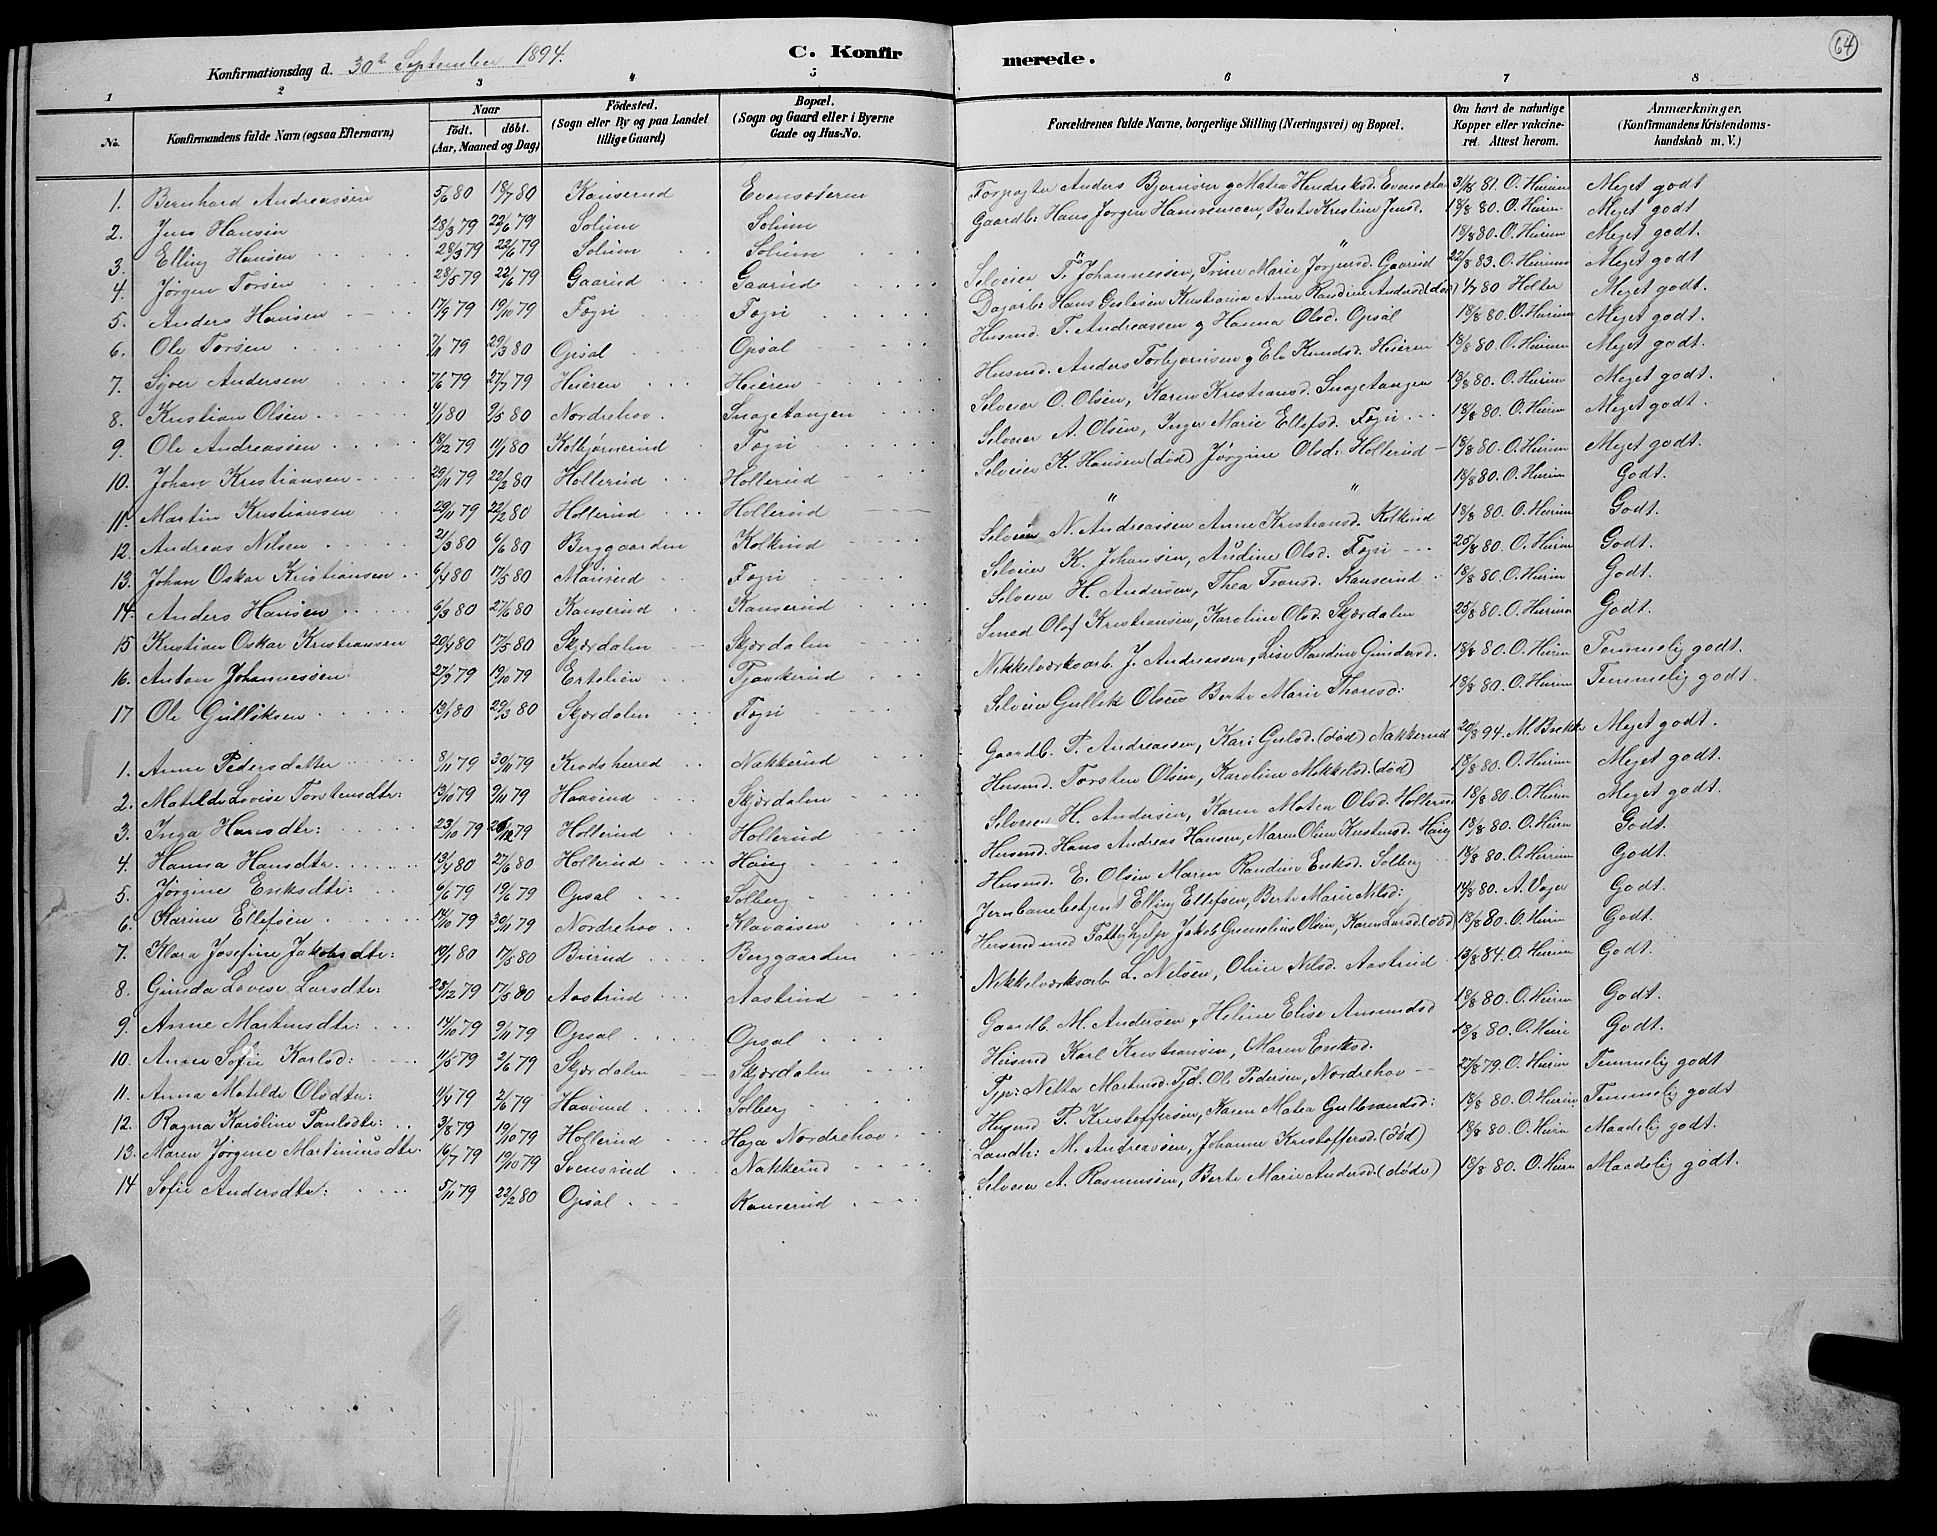 64
Konfirmationsdag d. 30te September 1894.
C. Konfirmerede.
1 2 3 4 5 6 7 8
No.
Konfirmandens fulde Navn (ogsaa Efternavn)
Naar
födt. döbt.
(Aar, Maaned og Dag)
Födested.
(Sogn eller By og paa Landet
tillige Gaard)
Bopæl.
(Sogn og Gaard eller i Byerne
Gade og Hus-No.
Forældrenes fulde Navne, borgerlige Stilling (Næringsvei) og Bopæl.
Om havt de naturlige
Kopper eller vakcine-
ret. Attest herom.
Anmærkninger.
(Konfirmandens Kristendoms-
kundskab m. V.)
1. Bernhard Andreassen 5/6 80 18/7 80 Kanserud Evensæteren Forpagter Anders Bjørnsen og Matea Hendriksd. 81. O. Hurum Meget godt
2. Jens Hansen 28/3 79 22/6 79 Solum Solum Gaardbr. Hans Jørgen Hansen, Berte Kristine Jensd. 18/8 80. O. Hurum Meget godt
3. Elling Hansen 28/3 79 22/6 79 Solum Solum " " 18/8 80. O. Hurum Meget godt.
4. Jørgen Torsen 28/5 79 22/6 79 Gaarud Gaarud Selveier T. Johannessen, Trine Marie Jørgensd. Gaarud 22/8 83. O. Hurum Meget godt
5. Anders Hansen 17/9 79 19/10 79 Fægri Fægri Dagarb. Hans Gislesen Kristiania Anne Randine Andersd (død) 1/7 80 Holter Meget godt.
6. Ole Torsen 7/11 79 29/3 80 Opsal Opsal Husmd. T. Andreassen og Hanna Olsd. Opsal 18/8 80. O. Hurum Meget godt.
7. Syver Andersen 7/6 79 27/7 79 Heieren Heieren Husmd. Anders Torbjørnsen og Eli Knudsd. Heieren 18/8 80. O. Hurum Meget godt.
8. Kristian Olsen 4/1 80 9/5 80 Nordrehov. Snagetangen Selveier O. Olsen, Karen Kristiansd. Snagetangen 18/8 80. O. Hurum Meget godt.
9. Ole Andreassen 18/12 79 11/1 80 Kolbjørnerud Fægri Selveier A. Olsen, Inger Marie Ellefsd. Fægri 18/8 80. O. Hurum Meget godt.
10. Johan Kristiansen 29/11 79 22/2 80 Hollerud Hollerud Selveier K. Hansen (død) Jørgine Olsd: Hollerud 18/8 80. O. Hurum Meget godt.
11. Martin Kristiansen 29/11 79 22/2 80 Hollerud Hollerud " " 18/8 80. O. Hurum Godt.
12. Andreas Nilsen 21/3 80 6/6 80 Berggaarden Kolkind Selveier N. Andreassen Anne Kristiansd. Kolkind 18/8 80. O. Hurum Godt.
13. Johan Oskar Kristiansen 6/4 80 17/5 80 Mausud Fægri Selveier K. Johansen, Audine Olsd. Fægri 25/8 80. O. Hurum Godt.
14. Anders Hansen 6/3 80 27/6 80 Kanserud Kanserud Selveier H. Andersen, Thea Tronsd. Kanserud 18/8 80. O. Hurum Godt.
15 Kristian Oskar Kristiansen 20/4 80 17/5 80 Skjærdalen Skjærdalen Smed Olaf Kristiansen, Karoline Olsd. Skjærdalen 25/8 80. O. Hurum Godt.
16. Anton Johannessen 27/9 79 19/10 79 Ertelien Nikkelværksarb. J. Andreassen, Lise Randine Gundersd. 18/8 80. O. Hurum Temmelig godt.
17 Ole Gulliksen 13/1 80 29/3 80 Skjærdalen Fægri Selveier Gullek Olsen Berte Marie Thoresd: 18/8 80. O. Hurum Temmelig godt.
1. Anne Pedersdatter 8/11 79 30/11 79 Krødsherred Nakkerud Gaardb. P. Andreassen, Kari Gulsd. (død) Nakkerud 20/8 94. M. Meget godt.
2. Matilde Lovise Torstensdtr: 13/10 79 9/11 79 Haavind Skjærdalen Husmd. Torsten Olsen, Karoline Mikkelsd. (død) 18/8 80. O. Hurum Meget godt.
3. Inga Hansdtr: 23/10 79 26/12 79 Hollerud Hollerud Selveier H. Andersen, Karen Matea Olsd. Hollerud 18/8 80. O. Hurum Meget godt.
4. Hanna Hansdtr. 13/4 80 27/6 80 Hollerud Haug Husmd. Hans Andreas Hansen, Maren Oline Haug 18/8 80. O. Hurum Godt.
5. Jørgine Eriksdtr: 6/6 79 19/6 79 Opsal Solberg Husmd. E. Olsen Maren Randine Eriksd. Solberg 18/8 80. O. Hurum Godt.
6. Karine Ellefsen 14/10 79 30/11 79 Nordrehov Klavaasen Jernbanebetjent Elling Ellefsen, Berte Marie Nilsd: 14/8 80. A. Godt.
7. Klara Josefine Jakobsdtr: 19/1 80 17/5 80 Burud Berggaarden Husmd med Fattighjelp Jakob Olsen, Karen Larsd. (død) 18/8 80. O. Hurum Godt.
8. Gunda Lovise Larsdtr: 28/12 79 17/5 80 Aastrud Aastrud Nikkelværksarb. L. Nilsen, Oline Nilsd. Aastrud 13/8 84. O. Hurum Godt.
9. Anne Martinsdtr: 14/10 79 9/11 79 Opsal Opsal Gaardb. M. Andersen, Helene Elise Amundsd 18/8 80. O. Hurum Godt.
10. Anne Sofie Karlsd: 11/5 79 2/6 79 Skjærdalen Skjærdalen Husmd Karl Kristiansen, Maren Eriksd. 18/8 80. O. Godt.
11. Anna Matilde Olsdtr: 11/4 79 2/6 79 Haavind Solberg Pige: Netta Martinsd. Tjd. Ole Pedersen, Nordrehov 27/8 79. O. Hurum Temmelig godt
12. Ragna Karoline Paulsdtr: 3/8 79 19/10 79 Hollerud Haga Nordrehov Husmd P. Kristoffersen, Karen Matea Gulbrandsd: 18/8 80. O. Hurum Temmelig godt
13. Maren Jørgine Martiniusdtr. 16/7 79 19/10 79 Svensrud Nakkerud Landh: M. Andreassen, Johanne Kristoffersd. (død) 18/8 80. O. Maadelig godt.
14 Sofie Andersdtr: 5/11 79 22/2 80 Opsal Kanserud Selveier A. Rasmussen, Berte Marie Andersd. (døde) 18/8 80. O. Maadelig godt.